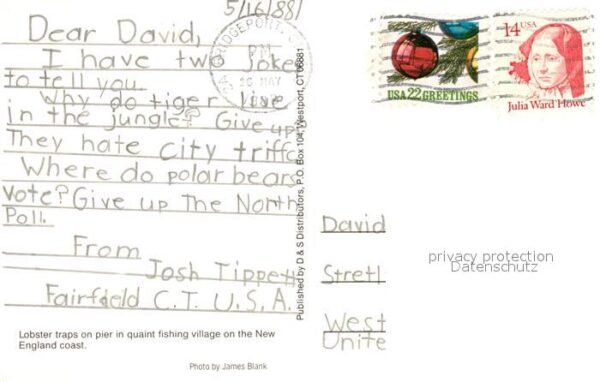 5/16/88
Dear David,
I have two joke
to tell you.
Why do tiger live
in the jungle? Give up
They hate city triffc
Where do polar bears
vote? Give up The North
Poll.
From
Josh Tippett
Fairfield C.T. U.S.A.
Lobster traps on pier in quaint fishing village on the New
England coast.
Photo by James Blank
Published by D & S Distributors, P.O. Box 104, Westport, CT 06881
BRIDGEPORT
PM
16 MAY
USA 22 GREETINGS
14
Julia Ward Howe
David
Stretl
West
Unite
privacy protection
Datenschutz